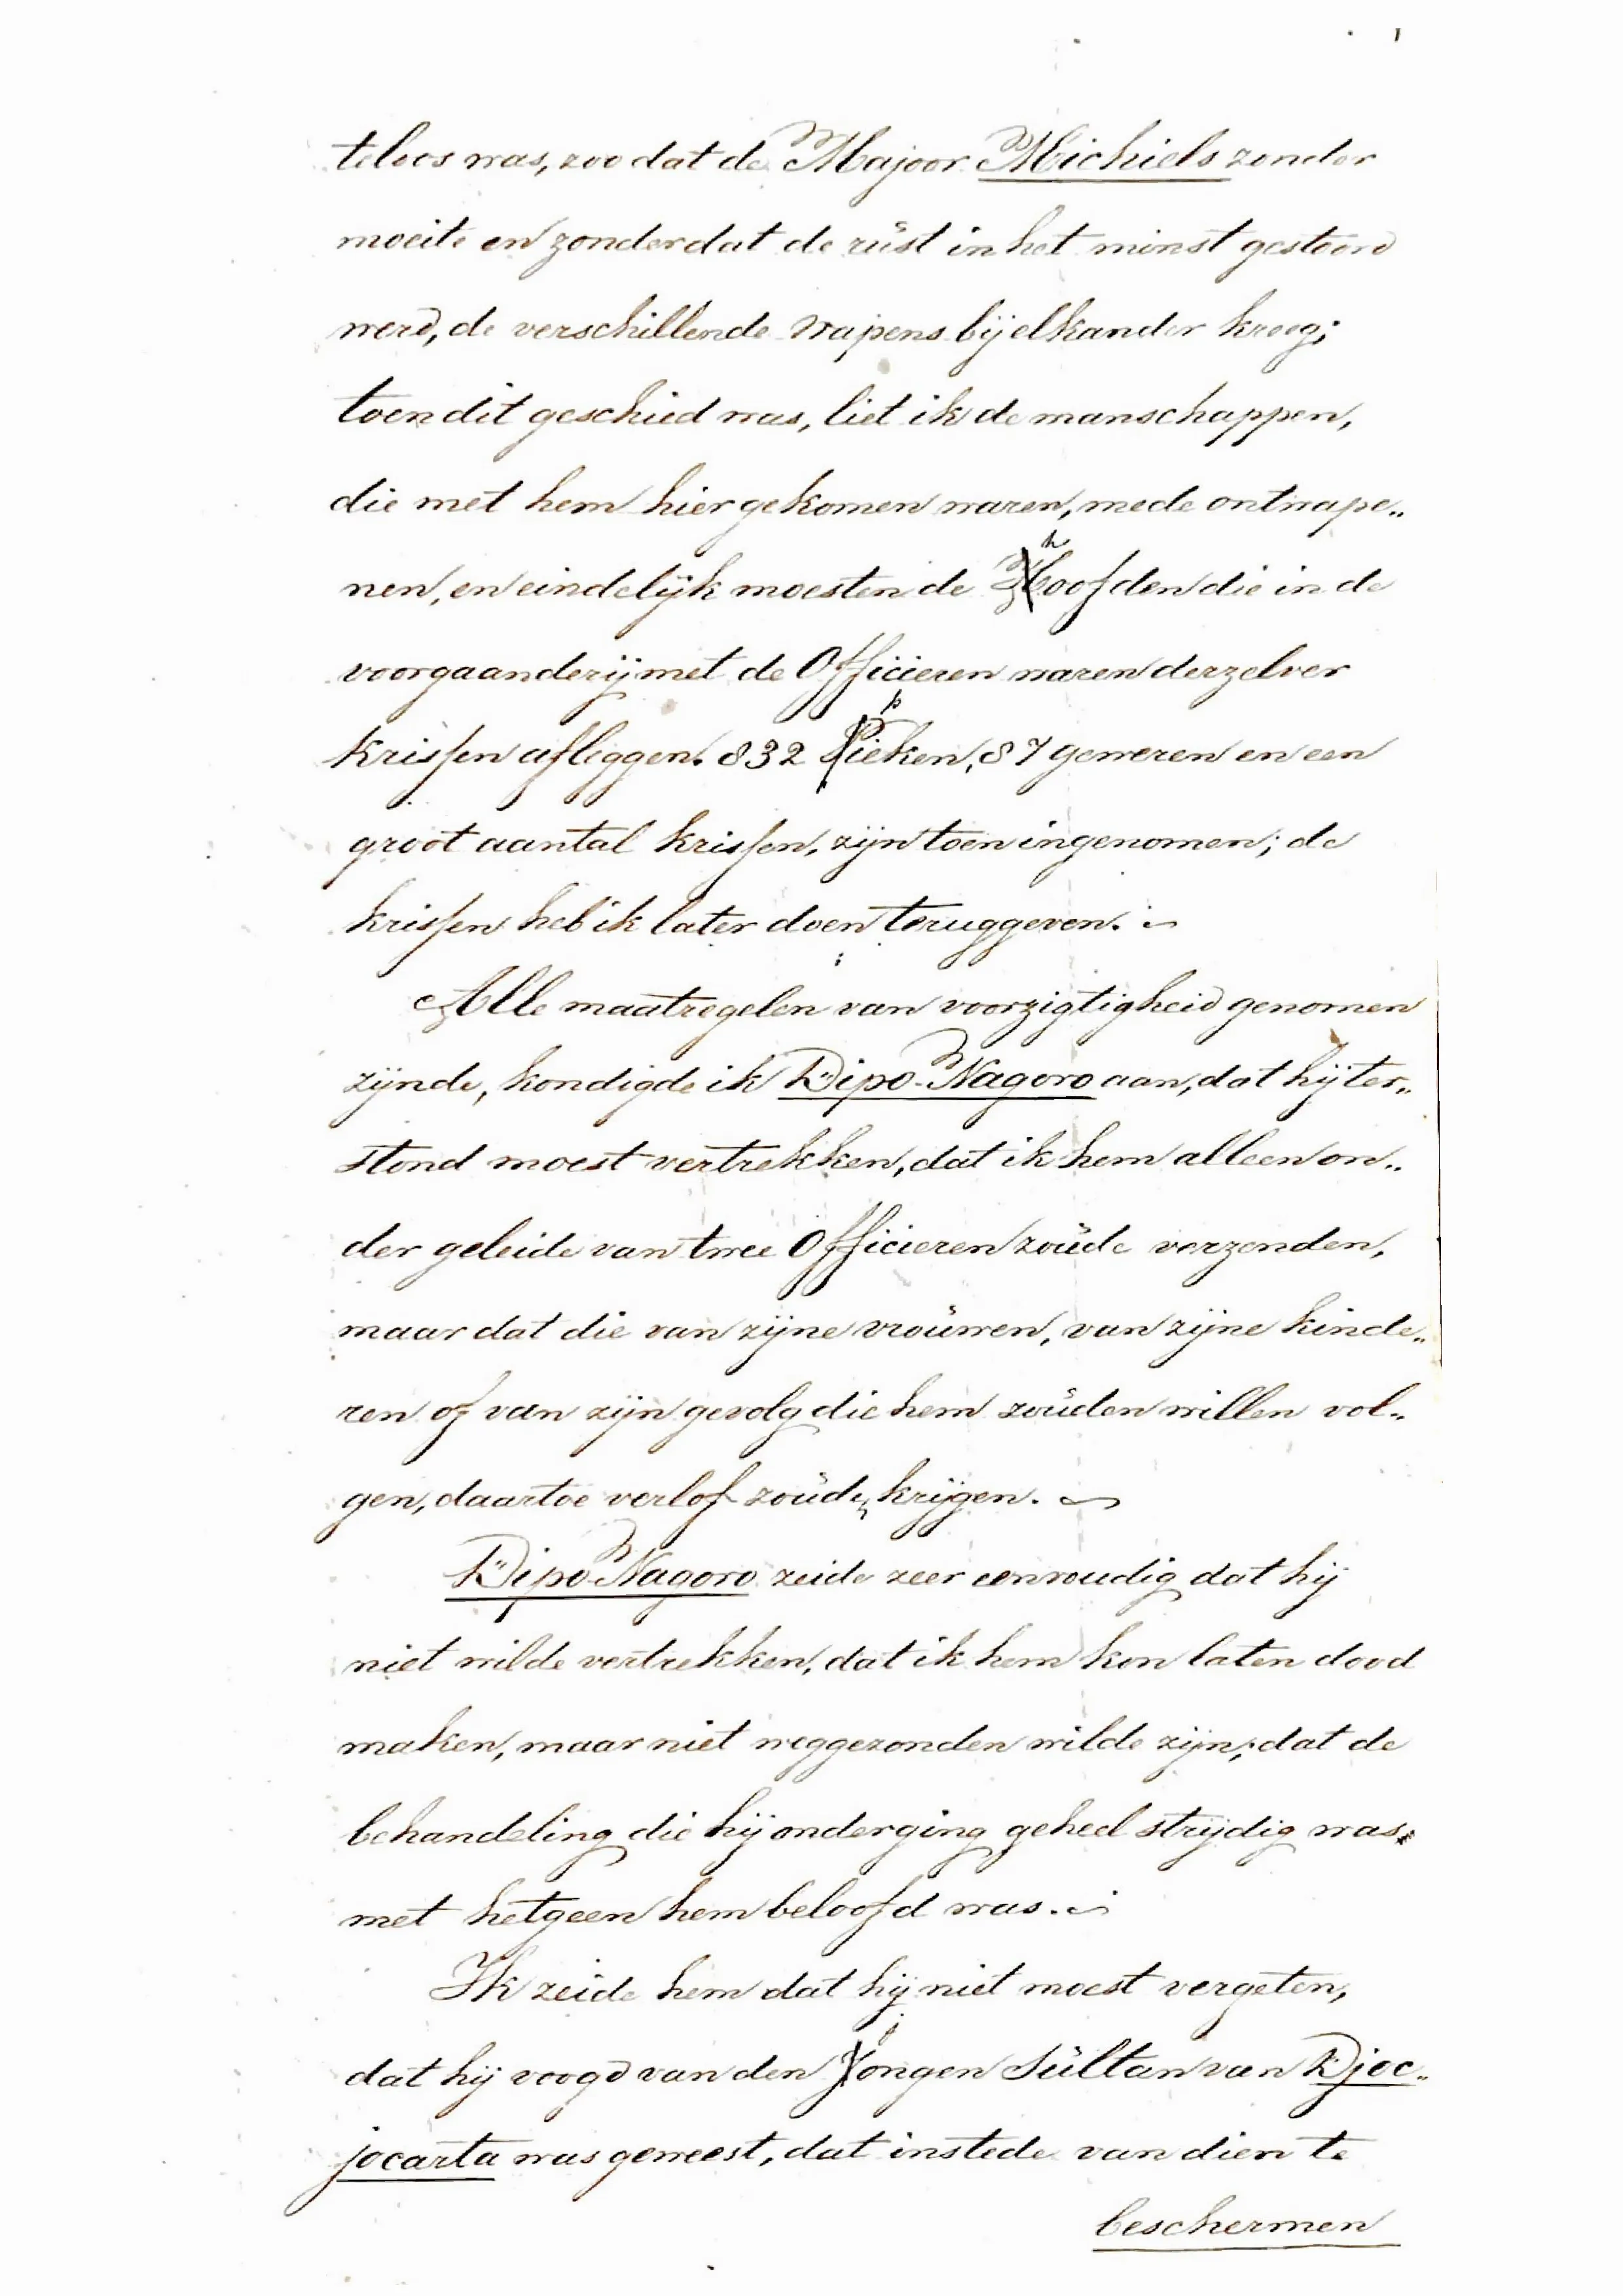 teloos was, zoo dat de Majoor Michiels zonder
moeite en zonder dat de rŭst in het minst gestoord
werd, de verschillende wapens bij elkander kreeg;
toen dit geschied was, liet ik de manschappen,
die met hem hier gekomen waren, mede ontwape„
nen, en eindelijk moesten de hoofden die in de
voorgaanderij met de Officieren waren derzelver
krissen afleggen. 832 pieken, 87 geweren en een
groot aantal krissen, zijn toen ingenomen; de
krissen heb ik later doen teruggeven.
Alle maatregelen van voorzigtigheid genomen
zijnde, kondigde ik Dipo-Nagoro aan, dat hij ter„
stond moest vertrekken, dat ik hem alleen on„
der geleide van twee Officieren zoŭde verzenden,
maar dat die van zijne vroŭwen, van zijne kinde„
ren of van zijn gevolg die hem zoŭden willen vol„
gen, daartoe verlof zoŭden krijgen.
Dipo-Nagoro zeide zeer eenvoudig dat hij
niet wilde vertrekken, dat ik hem kon laten dood
maken, maar niet weggezonden wilde zijn; dat de
behandeling die hij onderging geheel strijdig was
met hetgeen hem beloofd was.
Ik zeide hem dat hij niet moest vergeten,
dat hij voogd van den jongen Sŭltan van Djoc„
jocarta was geweest, dat instede van dien te
beschermen